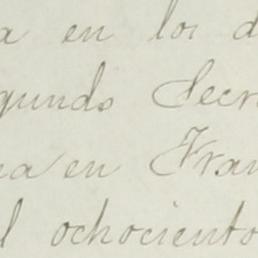 a en los d
gundo Secr
na en Fran
l ochociento